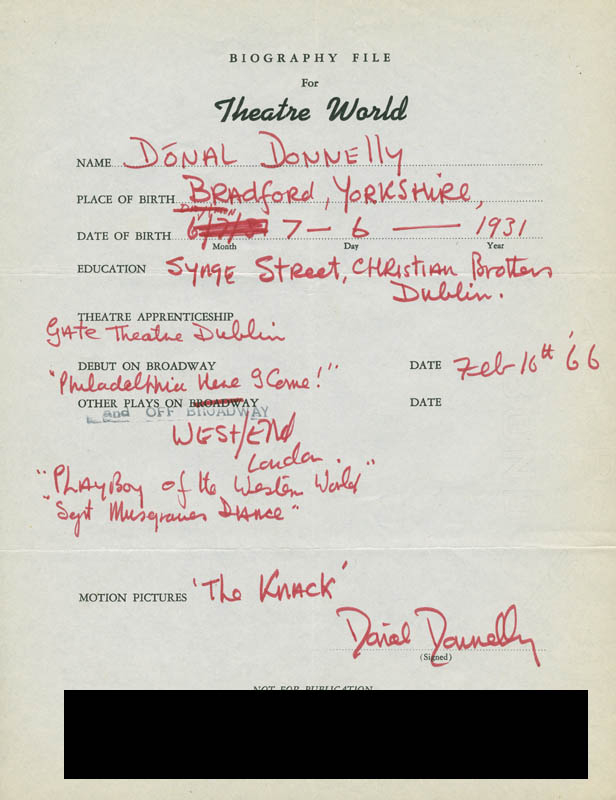 BIOGRAPHY FILE
For
Theatre World
NAME DÓNAL DONNELLY
PLACE OF BIRTH BRADFORD, YORKSHIRE,
DATE OF BIRTH 7 - 6 - 1931
Month Day Year
EDUCATION SYNGE STREET, CHRISTIAN Brothers
Dublin.
THEATRE APPRENTICESHIP
GATE Theatre Dublin
DEBUT ON BROADWAY DATE Feb 16th '66
"Philadelphia Here I Come!"
OTHER PLAYS ON BROADWAY DATE
and OFF BROADWAY
WEST/END
London.
"PLAYBOY of the Western World"
"Sgt Musgraves DANCE"
MOTION PICTURES 'The KNACK'
Donal Donnelly
(Signed)
NOT FOR PUBLICATION